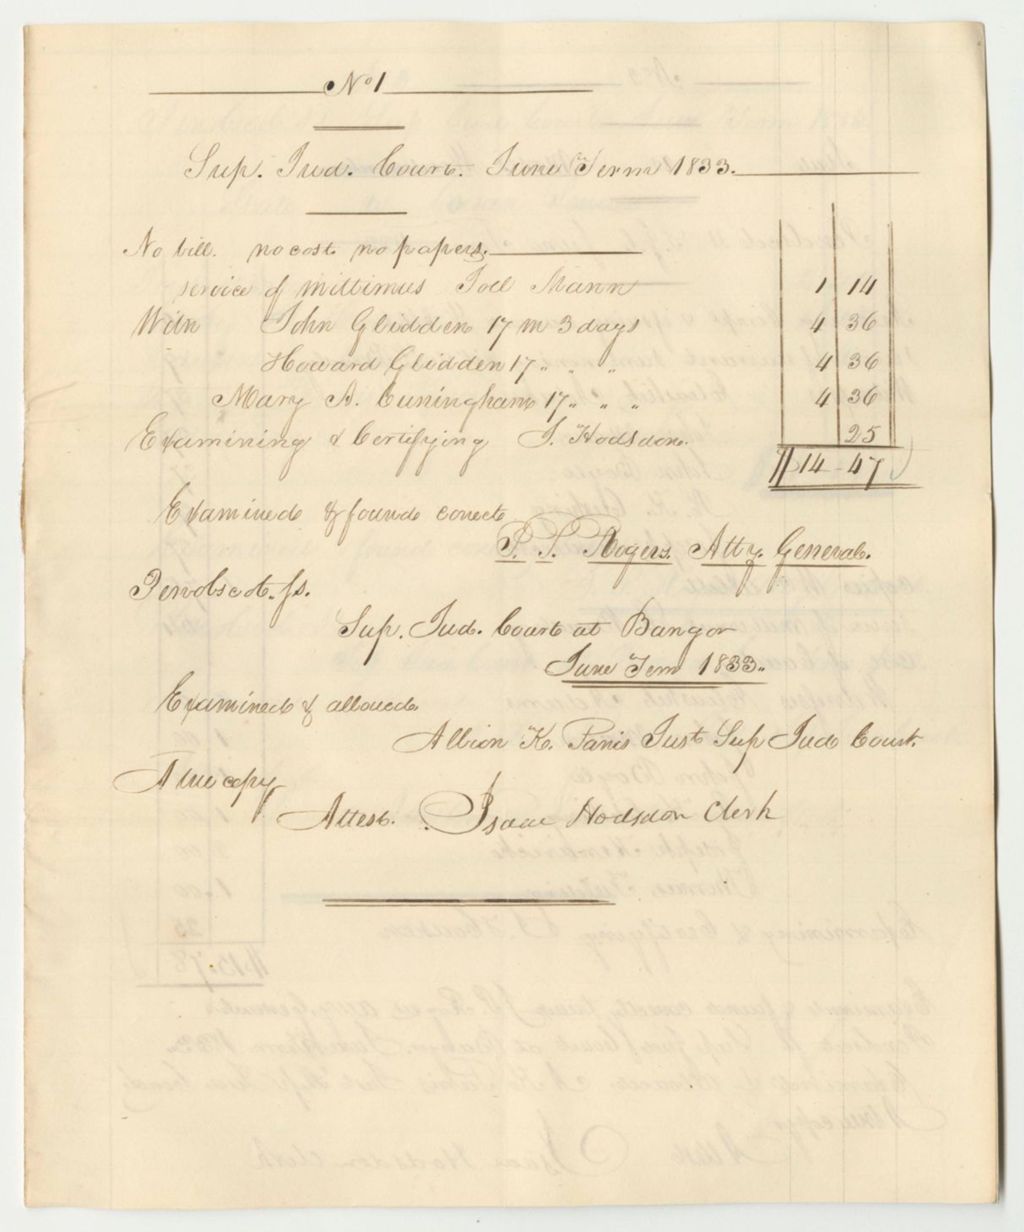 No 1
Sup. Jud. Court. June Term 1833.
No bill. no cost no papers.
service of mittimus Joel Mann 1 14
Witn John Glidden 17 m 3 days 4 36
Howard Glidden 17 " " " 4 36
Mary A. Cuningham 17 " " " 4 36
Examining & Certifying I. Hodsdon. 25
14-47
Examined & found correct
Rogers. Atty. General.
Penobscot. ss.
Sup. Jud. Court at Bangor
June Term 1833.
Examined & allowed
Albion K. Paris Just Sup Jud Court.
A true copy
Attest. Isaac Hodsdon Clerk